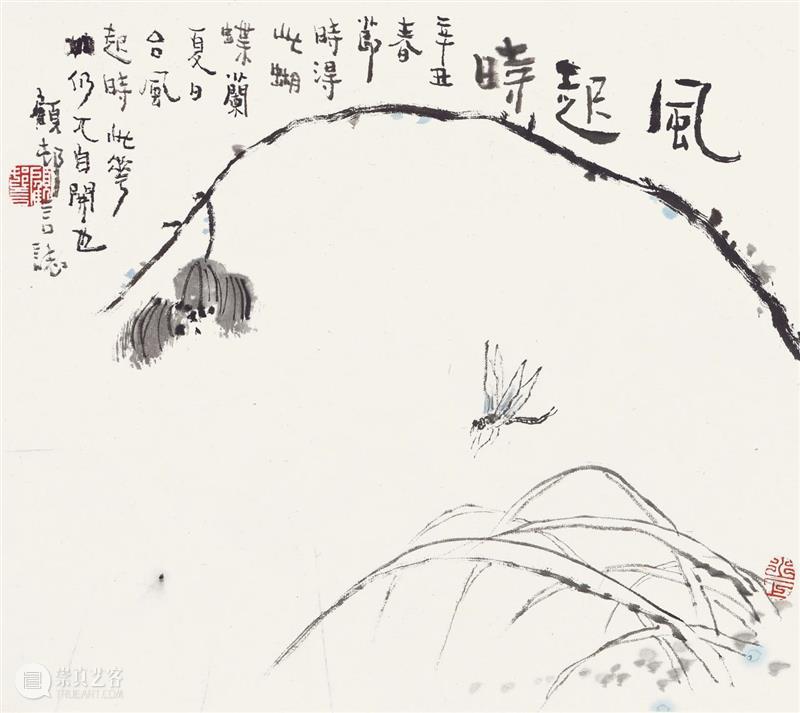 風起時
辛丑
春
節
時得
此蝴
蝶蘭
夏日
台風
起時此華
仍兀自開也
顧邨言誌
崇真艺客
TRUEART.COM